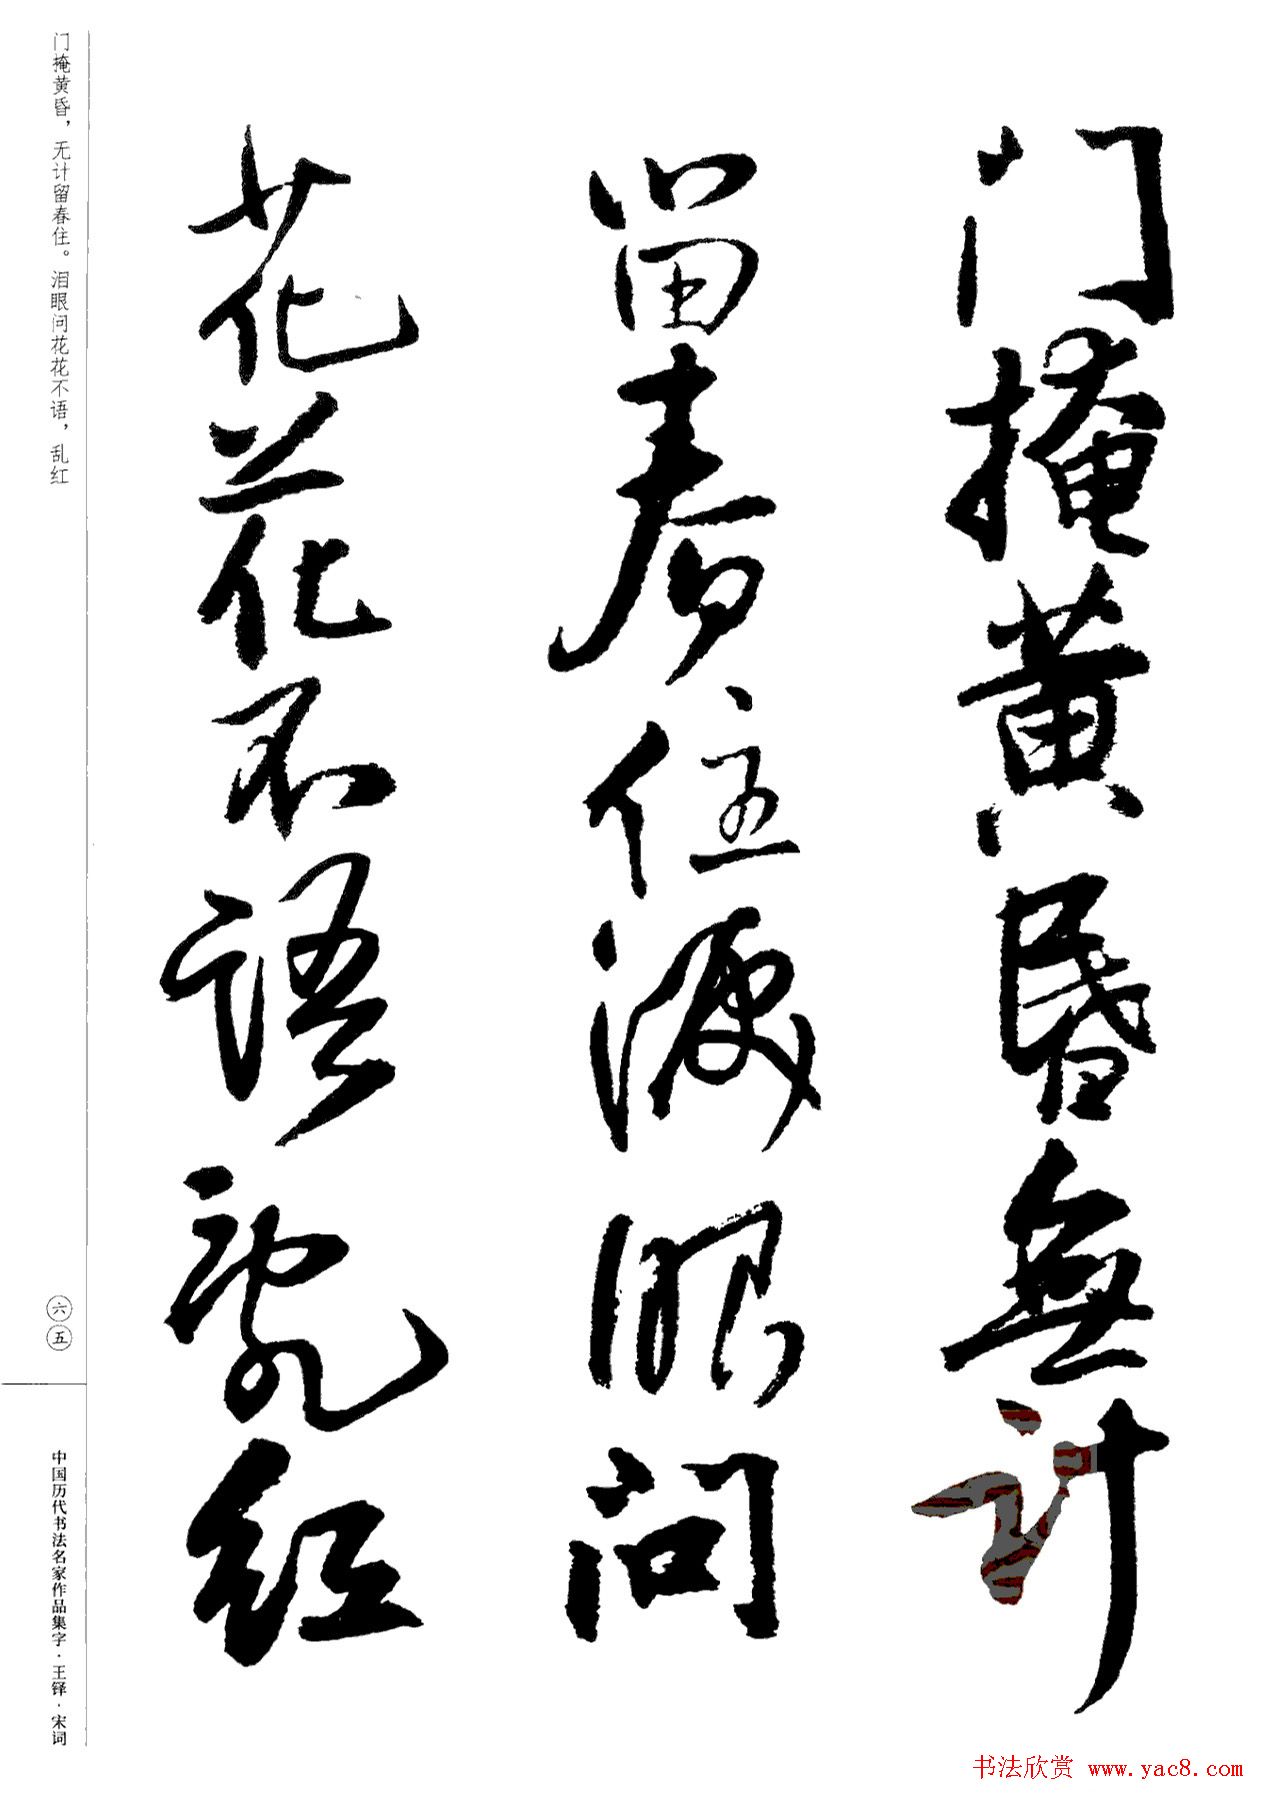 门掩黄昏無计
留春住淚眼问
花花不语亂红
门掩黄昏，无计留春住。泪眼问花花不语，乱红
六五
中国历代书法名家作品集字·王铎·宋词
书法欣赏 www.yac8.com